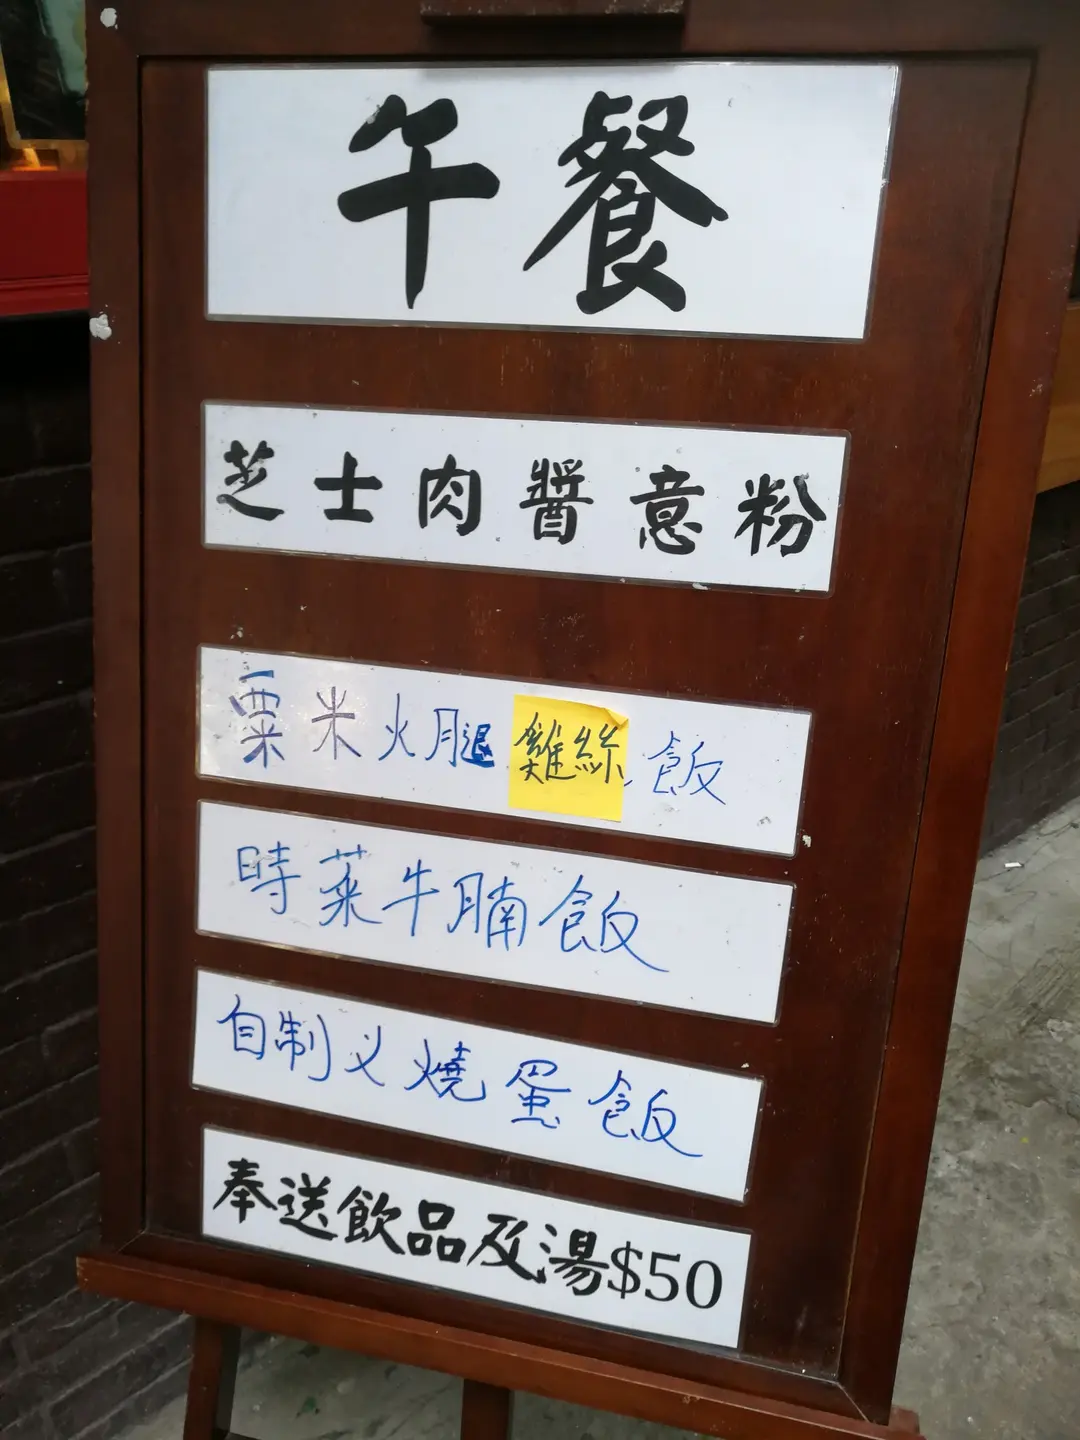 午餐
芝士肉醬意粉
粟米火腿雞絲飯
時菜牛腩飯
自制叉燒蛋飯
奉送飲品及湯$50